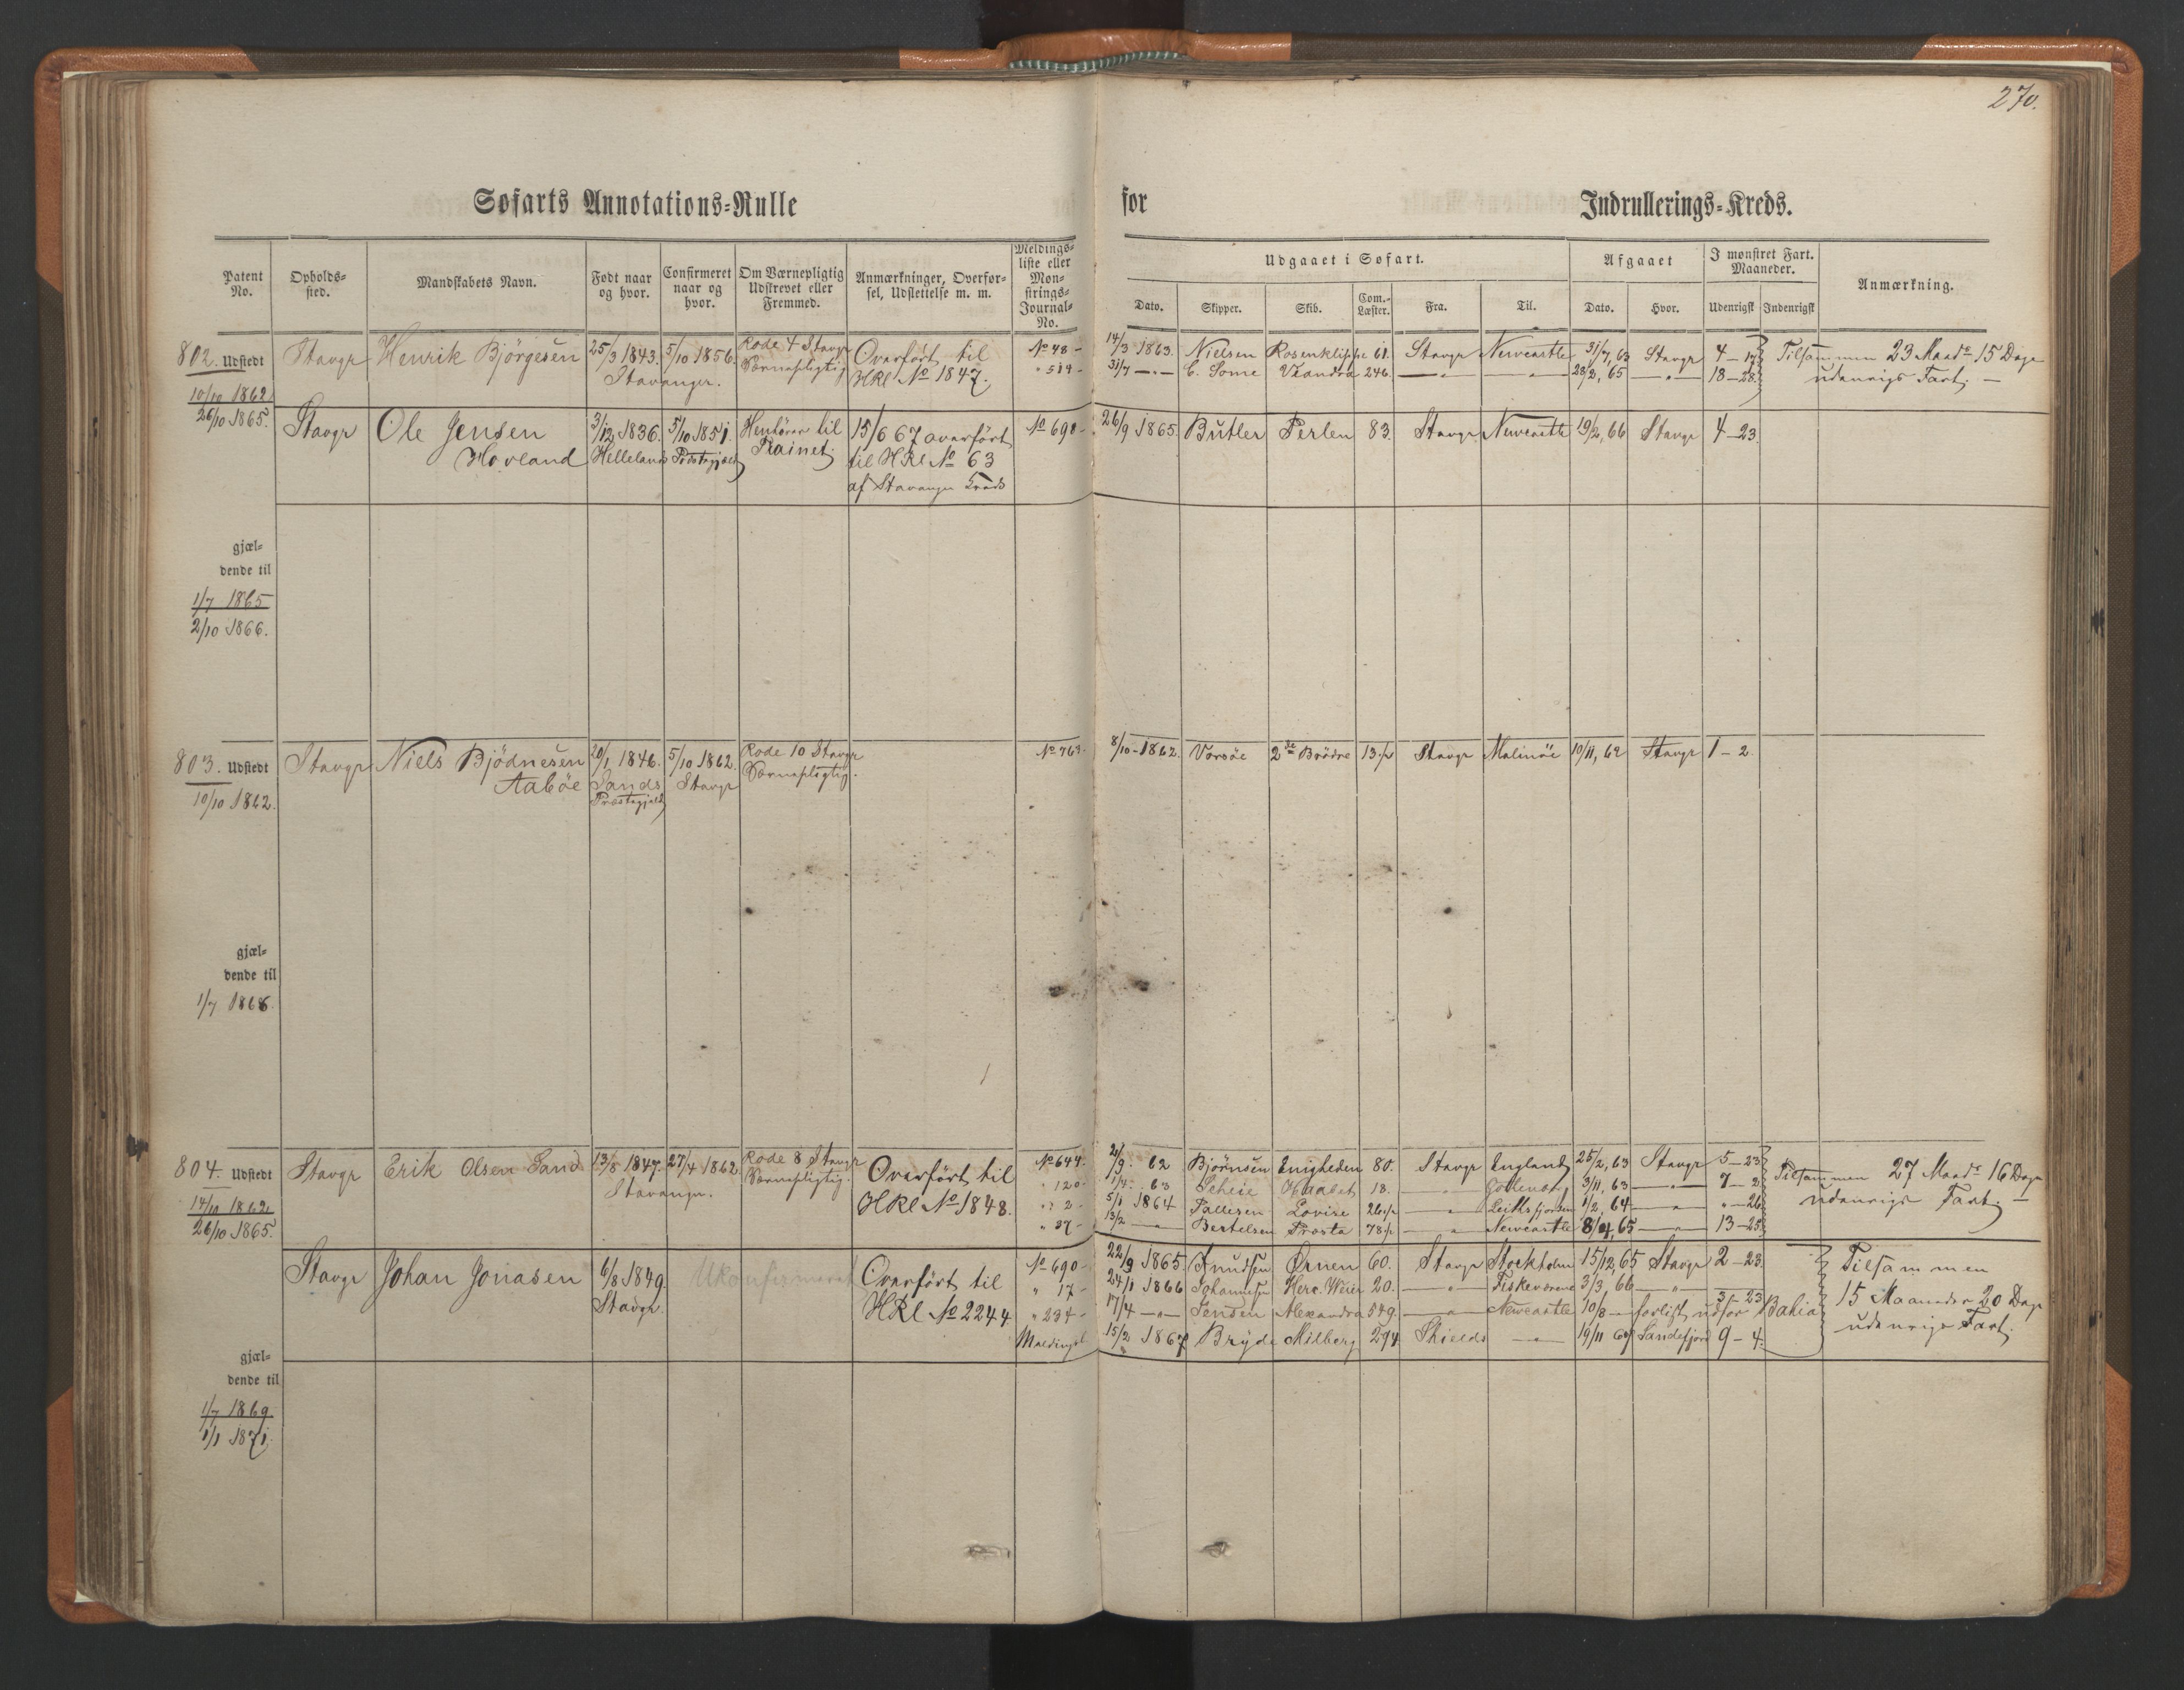 270.
Søfarts Annotations-Rulle
for
Indrullerings-Kreds.
Patent No.
Opholds-sted.
Mandskabets Navn.
Født naar og hvor.
Confirmeret naar og hvor.
Om Værnepligtig Udskrevet eller Fremmed.
Anmærkninger, Overførsel, Udslettelse m. m.
Meldings-liste eller Mønstrings-Journal-No.
Udgaaet i Søfart.
Dato.
Skipper.
Skib.
Com.-Læster.
Fra.
Til.
Afgaaet
Dato.
Hvor.
I mønstret Fart. Maaneder.
Udenrigsk
Indenrigsk
Anmærkning.
802. Udstedt
10/10 1862
26/10 1865.
Stavgr
Henrik Björgesen
25/3 1843.
Stavanger.
5/10 1856.
Rode 4 Stavgr
Værnepligtig
Overført til
HRl No 1847.
No 48 -
" 519 -
14/3 1863. Nielsen Rosenklippe 61. Stavgr Newcastle 31/7, 63 Stavgr 4 - 17
31/7 — " — C. Some Veandra 246. — " — — " — 28/2, 65 — " — 18 - 28
Tilsammen 23 Maads 15 Dage
udenrigs Fart. —
Stavgr
Ole Jensen
Hovland
3/12 1836.
Helleland
5/10 1851.
Præstegjæld
Henhører til
15/6 67 overført
til HRl No 63
af Stavanger Kreds
No 698 -
26/9 1865. Butler Perlen 83. Stavgr Newcastle 19/2, 66 Stavgr 4 - 23.
gjæl-
dende til
1/7 1865
2/10 1866.
803. Udstedt
10/10 1862.
Stavgr
Niels Bjödnesen
Aaböe
20/1 1846.
Sands
Præstegjæld
5/10 1862.
Stavgr
Rode 10 Stavgr
Værnepligtig.
No 763 -
8/10 - 1862. Vorsöe 2de Brödre 13 1/2 Stavgr Malmöe 10/11, 62 Stavgr 1 - 2.
gjæl-
dende til
1/7 1868.
804. Udstedt
14/10 1862
26/10 1865.
Stavgr
Erik Olsen Sand
13/8 1847.
Stavanger.
27/4 1862.
Rode 8 Stavgr
Værnepligtig.
Overført til
HRl No 1848.
No 644.
" 120 -
" 2 -
" 37 -
62 Björnsen Enigheden 80. Stavgr England 25/2, 63 Stavgr 5 - 23
63 Scheie Haabet 18. — " — Gottenborg 3/11, 63 — " — 7 - 2
5/1 1864 Pallesen Lovise 26 1/2 — " — 1/2, 64 — " — " - 26
13/2 — " — Bertelsen Prosta 78 1/2 — " — Newcastle 8/4, 65 — " — 13 - 25
Tilsammen 27 Maads 16 Dage
udenrigs Fart. —
Stavgr
Johan Jonasen
6/8 1849.
Stavgr.
Ukonfirmeret
Overført til
HRl No 2244
No 690 -
" 17 -
" 234 -
Meldingsl
22/9 1865. Knudsen Ørnen 60. Stavgr Stockholm 15/12, 65 Stavgr 2 - 23.
24/1 1866 Johannesen Herc. Weier 20. — " — Fiskeværene 3/3, 66 — " —
17/4 — " — Jensen Alexandra 549. — " — Newcastle 10/8 - forlist udfor Bahia 3 - 23
15/2 1867 Bryde Milberg 274. Shields — " — 19/11 67 Sandefjord 9 - 4.
Tilsammen
15 Maaneder 20 Dage
udenrigs Fart.
gjæl-
dende til
1/7 1869
1/1 1871.